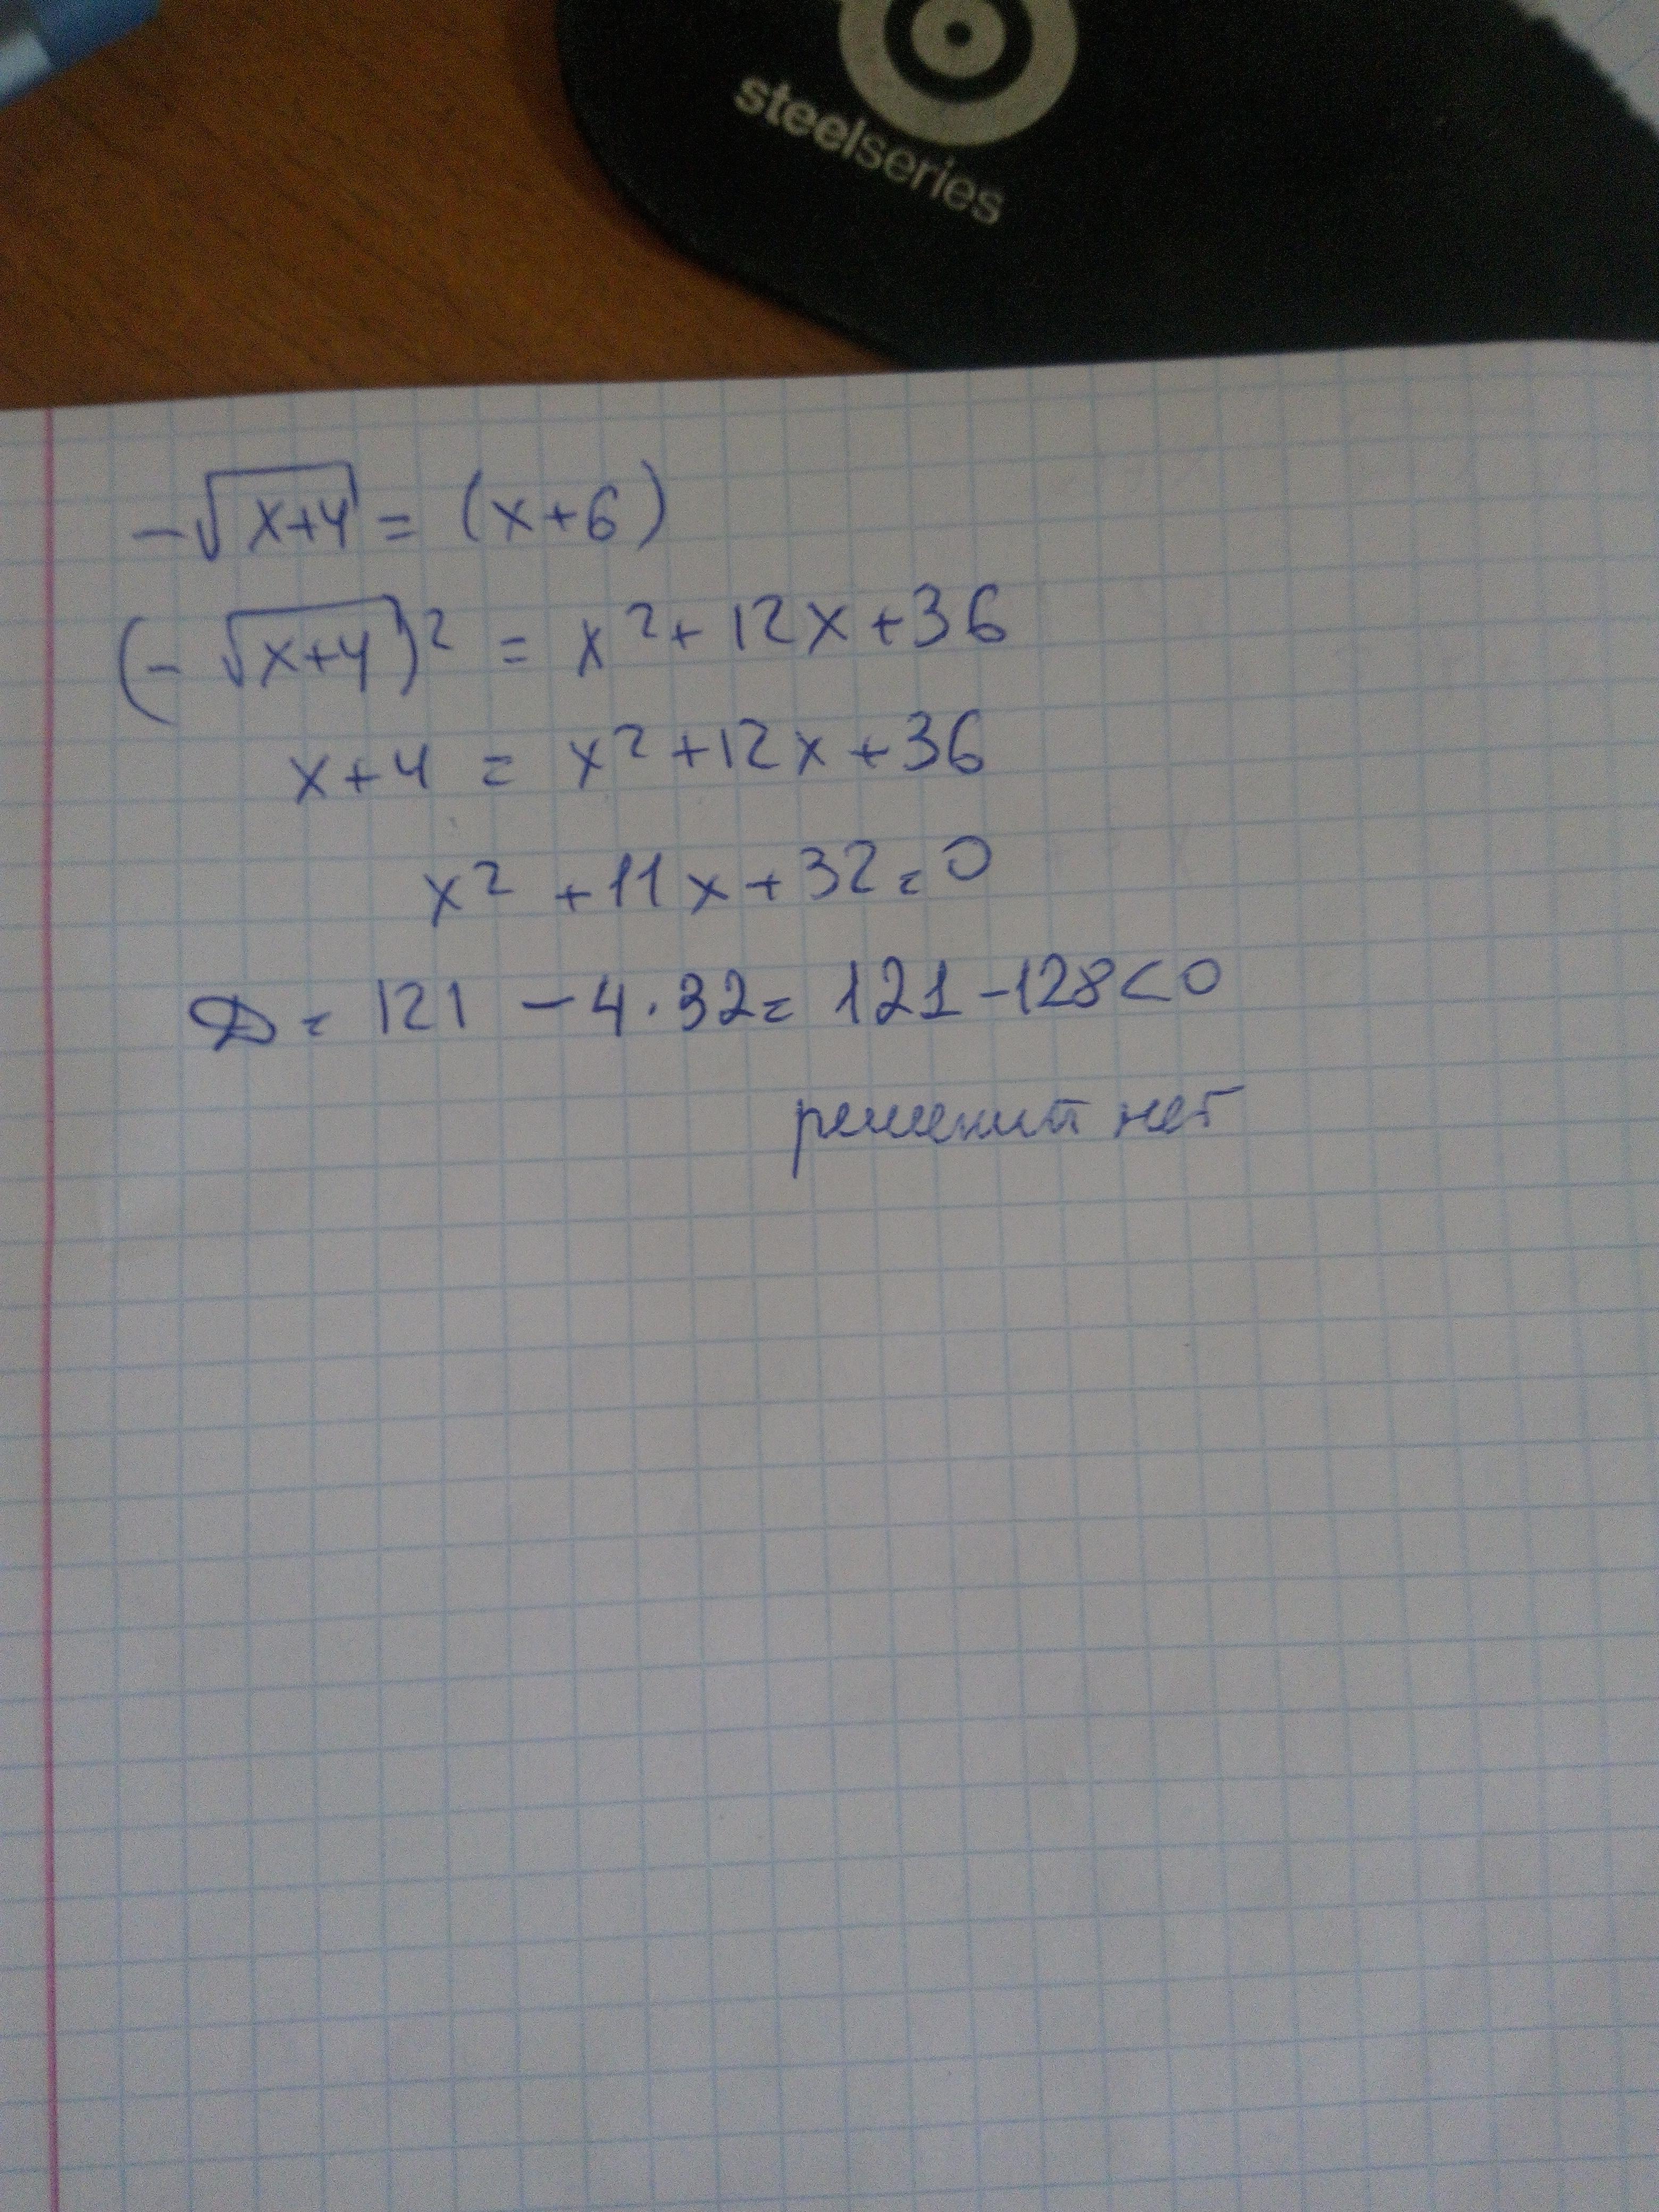 steelseries
-√x+4 = (x+6)
(-√x+4)² = x²+12x+36
x+4 = x²+12x+36
x²+11x+32=0
D = 121 - 4·32 = 121 - 128<0
решений нет